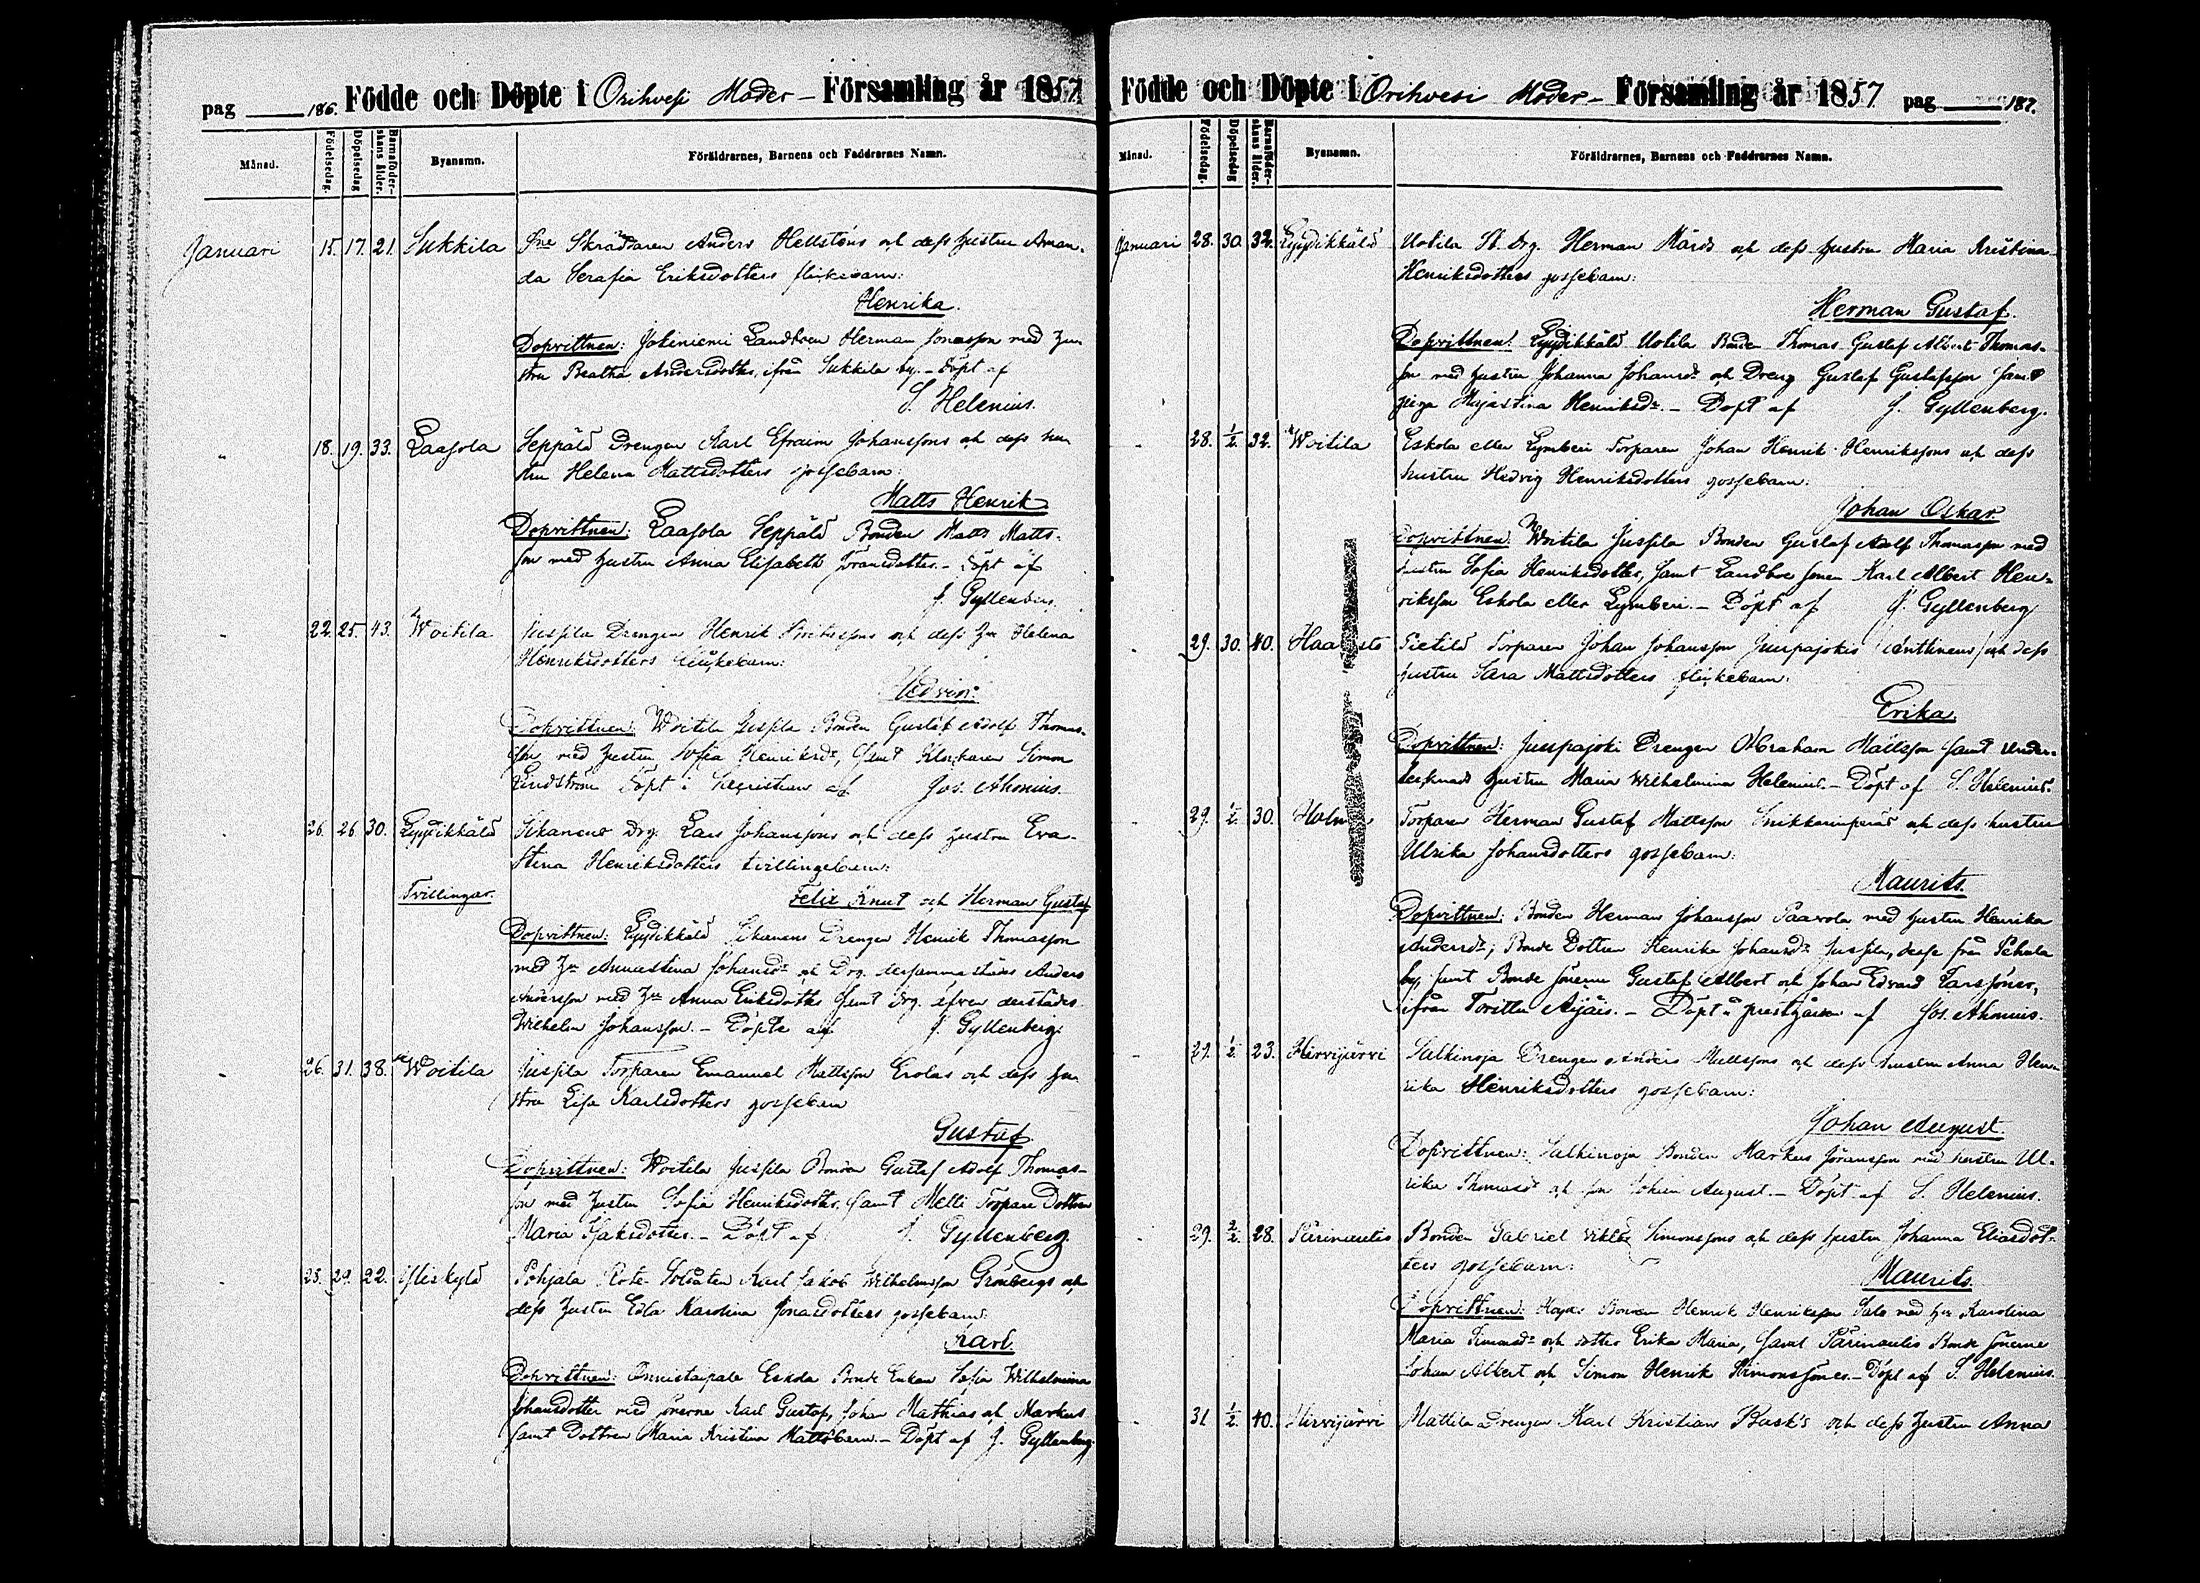 pag 186. Födde och Döpte i Orihvesi Moder - Församling år 1857
Månad. Födelsedag. Döpelsedag Barnsföderskans ålder. Byanamn. Föräldrarnes, Barnens och Faddrarnes Namn.
Januari 15. 17. 21. Sukkila Skräddaren Anders Hellstöns och dess hustru Aman-
da Serafia Eriksdotters flickebarn:
Henrika.
Dopvittnen: Jokiniemi Landboen Herman Jonasson med hu-
stru Beatha Andersdotter, ifrån Sukkila by. - Döpt af
S. Helenius.
" 18. 19. 33. Laasola Seppälä Drengen Karl Efraim Johanssons och dess hu-
stru Helena Mattsdotters gossebarn:
Matts Henrik
Dopvittnen: Laasola Seppälä Bonden Matts Matts-
son med hustru Anna Elisabeth Göransdotter. - Döpt af
J. Gyllenberg.
22. 25. 43. Woitila Jussila Drengen Henrik och dess Helena
Henriksdotters flickebarn:
Hedvig.
Dopvittnen: Woitila Jussila Bonden Gustaf Adolf Thomas-
son med hustru Sofia Henriksdr, samt Klockaren Simon
Lindström Döpt i Sacristian af Jos. Ahonius.
26. 26. 30. Lyydikkälä Sikanens Drg. Lars Johanssons och dess hustru Eva-
Stina Henriksdotters tvillingebarn:
Tvillingar. Felix Knut och Herman Gustaf
Dopvittnen: Lyydikkälä Sikanens Drengen Henrik Thomasson
med Annastina Johansdr och Drg. dersammastädes Anders
Andersson med Anna Eriksdotter samt Drg. äfven derstädes
Wilhelm Johansson. - Döpte af J. Gyllenberg.
26. 31. 38. Woitila Jussila Torparen Emanuel Mattsson Erolas och dess hu-
stru Lisa Karlsdotters gossebarn
Gustaf.
Dopvittnen: Woitila Jussila Bonden Gustaf Adolf Thomas-
son med hustru Sofia Henriksdotter, samt Melli Torpare Dottren
Maria Isaksdotter. - Döpt af J. Gyllenberg
28. 29. 22. Yliskylä Pohjala Rote Soldaten Karl Jakob Wilhelmsson Grönbergs och
dess hustru Edla Karolina Jonasdotters gossebarn:
Karl.
Dopvittnen: Onnistaipale Eskola Bonde Enkan Sofia Wilhelmina
Johansdotter med sönerne Karl Gustaf, Johan Mathias och Markus
samt Dottren Maria Kristina Mattsbarn. - Döpt af J. Gyllenberg
Födde och Döpte i Orihvesi Moder - Församling år 1857 pag 187.
Månad. Födelsedag. Döpelsedag Barnsföderskans ålder. Byanamn. Föräldrarnes, Barnens och Faddrarnes Namn.
Januari 28. 30. 32. Lyydikkälä Uotila Drg. Herman och dess hustru Maria Kristina
Henriksdotters gossebarn:
Herman Gustaf.
Dopvittnen: Lyydikkälä Uotila Bonden Thomas Gustaf Albert Thomas-
son med hustru Johanna Johansdr och Dreng Gustaf Gustafsson samt
piga Majastina Henriksdr. - Döpt af J. Gyllenberg.
28. 1/2. 32. Woitila Eskola eller Lymberi Torparen Johan Henrik Henrikssons och dess
hustru Hedvig Henriksdotters gossebarn:
Johan Oskar.
Dopvittnen: Woitila Jussila Bonden Gustaf Adolf Thomasson med
hustru Sofia Henriksdotter, samt Landboe sonen Karl Albert Hen-
riksson Eskola eller Lymberi. - Döpt af J. Gyllenberg
29. 30. 40. Haa sto Pietilä Torparen Johan Johansson Juupajokis och dess
hustru Sara Mattsdotters flickebarn:
Erika.
Dopvittnen: Juupajoki Drengen Abraham Mattsson samt Under-
tecknads hustru Maria Wilhelmina Helenius. - Döpt af S. Helenius.
29. 1/2. 30. Holm Torparen Herman Gustaf Mattsson och dess hustru
Ulrika Johansdotters gossebarn:
Maurits.
Dopvittnen: Bonden Herman Johansson Paavola med hustru Henrika
Andersdr; Bonde Dottren Henrika Johansdr Jussila, desse från Pehula
by, samt Bonde sönerne Gustaf Albert och Johan Edvard Larssöner,
ifrån Torittu Äijäis. - Döpt i prestgården af Jos. Ahonius.
29. 1/2. 23. Hirvijärvi Salkinoja Drengen Anders Mattssons och dess hustru Anna Hen-
rika Henriksdotters gossebarn:
Johan August.
Dopvittnen: Salkinoja Bonden Markus Göransson med hustru Ul-
rika Thomasdr och son Johan August. - Döpt af S. Helenius.
29. 2/2. 28. Pärinautio Bonden Gabriel Viktor Simonssons och dess hustru Johanna Eliasdot-
ters gossebarn:
Maurits.
Dopvittnen: Bonden Henrik Henriksson Salo med Karolina
Maria Simonsdr och dotter Erika Maria, samt Pärinautio Bonde sönerne
Johan Albert och Simon Henrik Simonssöner. - Döpt af S. Helenius.
31 1/2. 40. Hirvijärvi Mattila Drengen Karl Kristian Bask's och dess hustru Anna